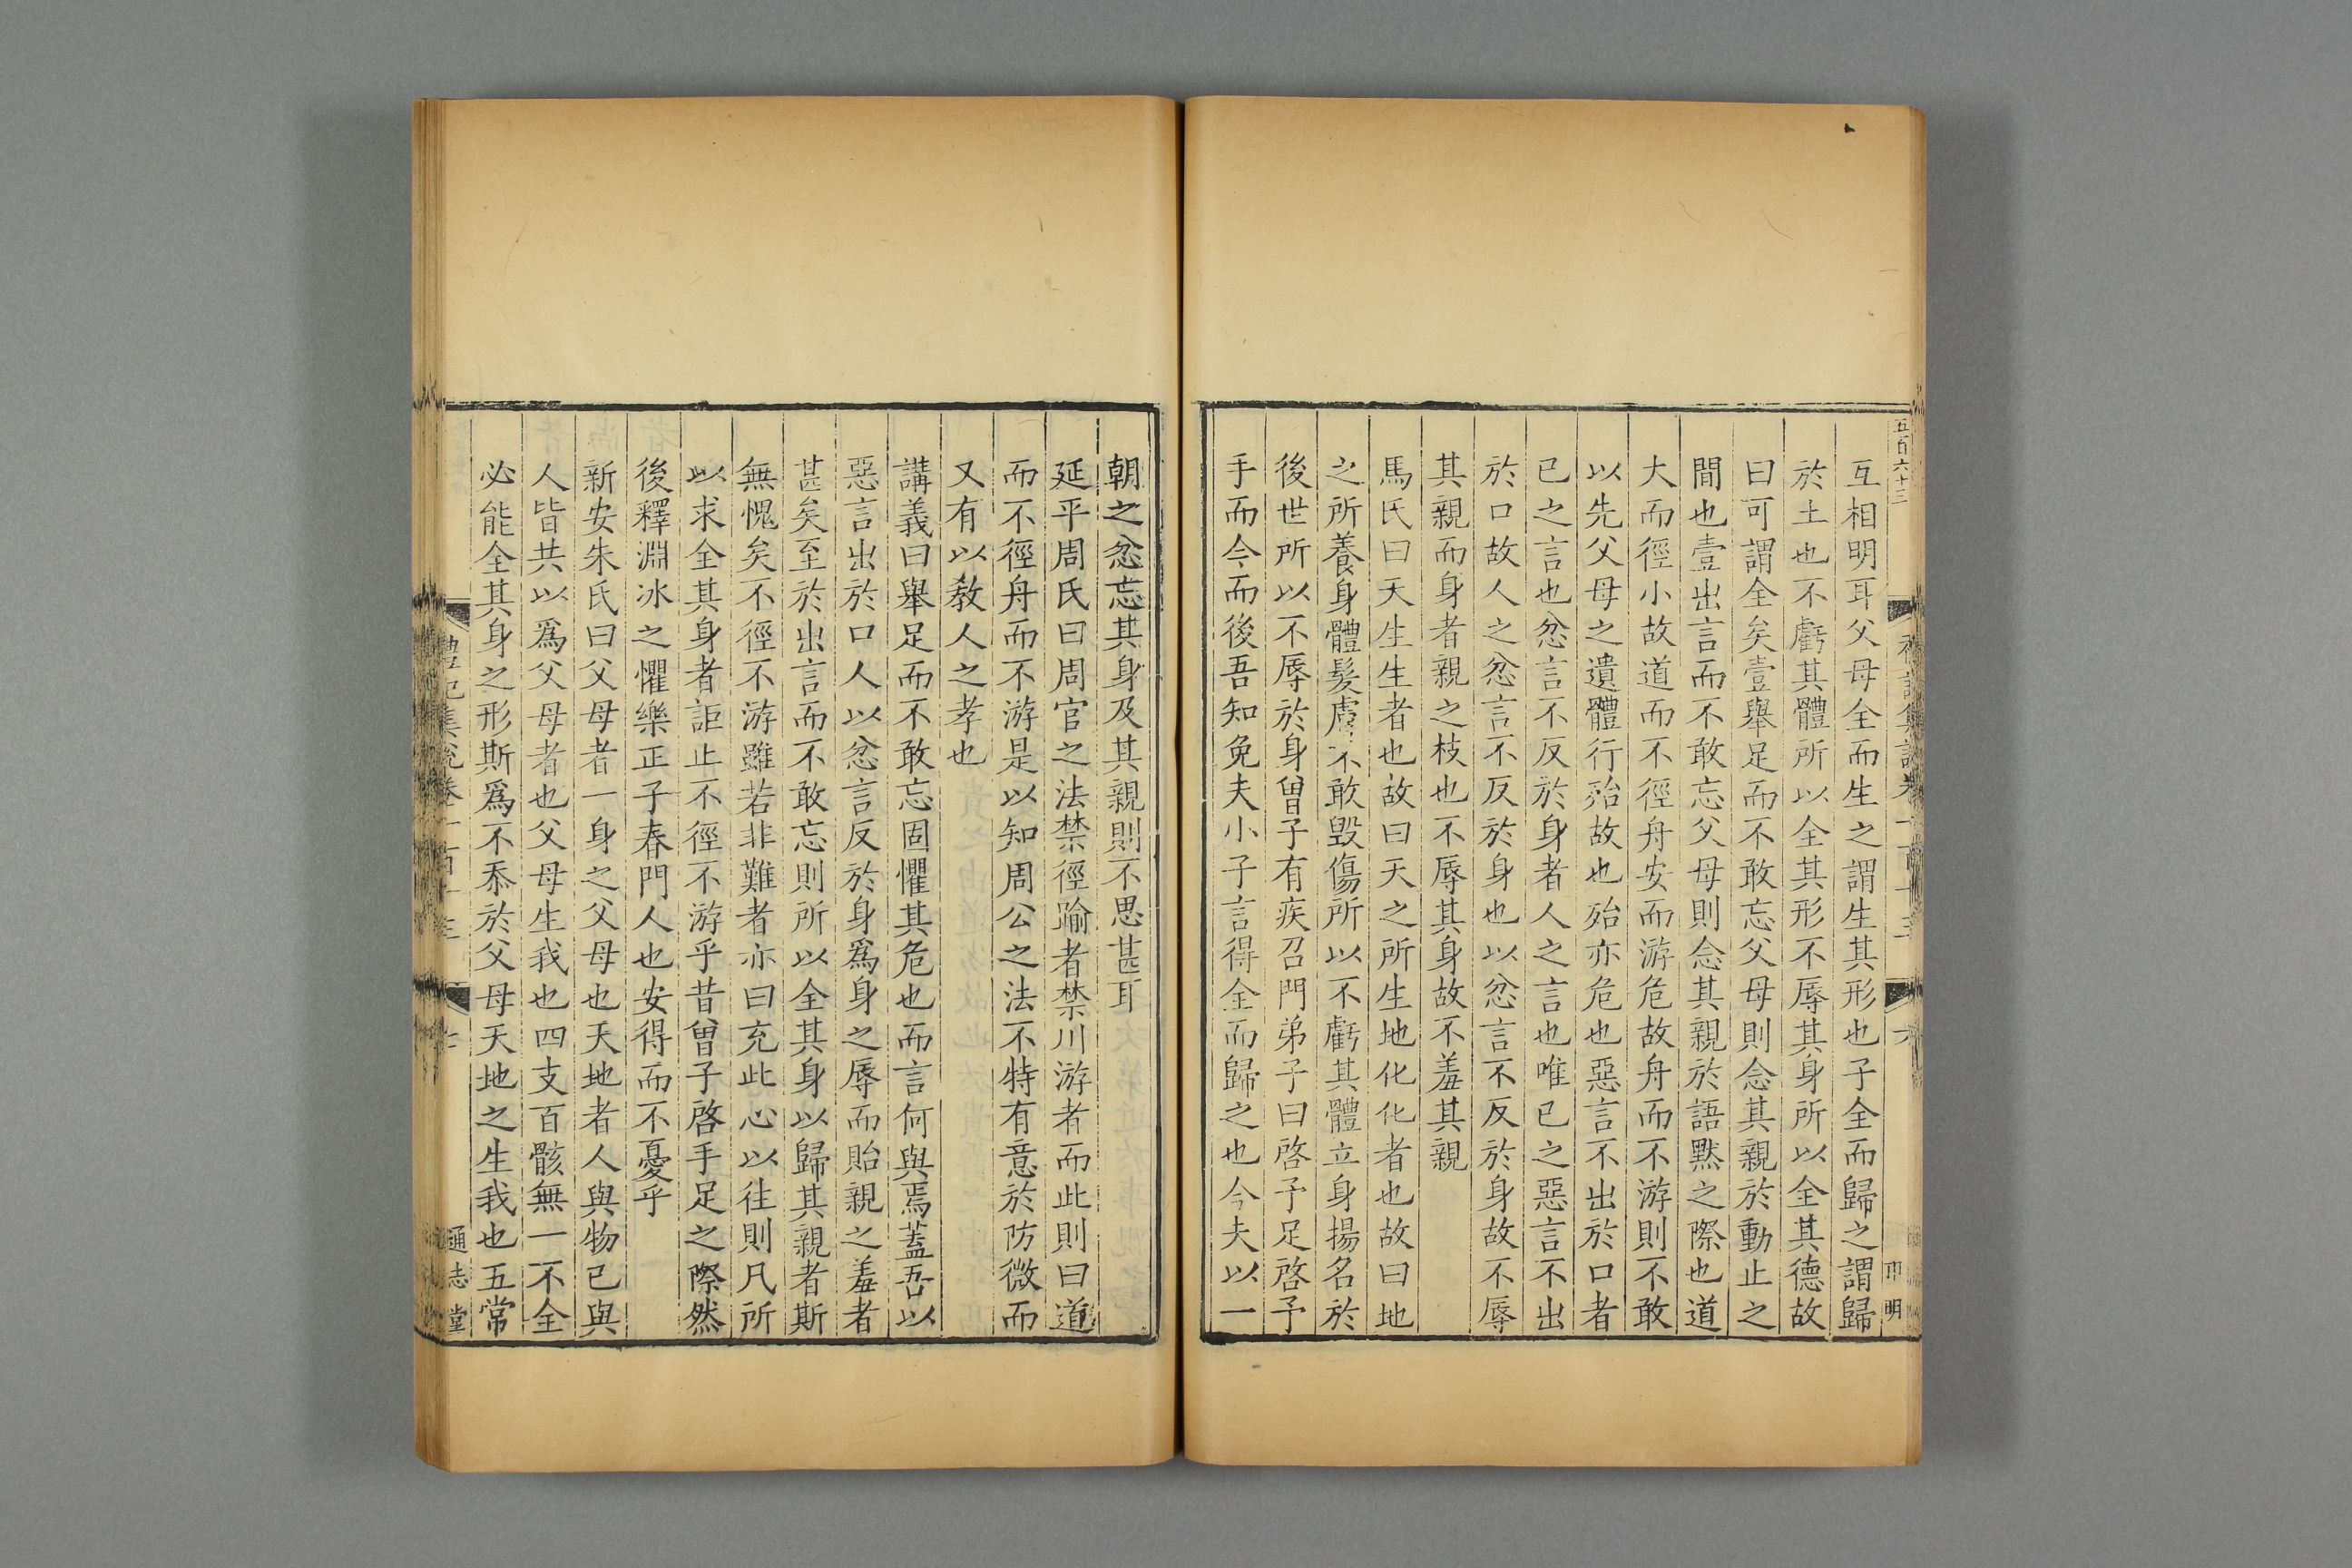 五百六十三
互相明耳父母全而生之謂生其形也子全而歸之謂歸
於土也不虧其體所以全其形不辱其身所以全其德故
曰可謂全矣壹舉足而不敢忘父母則念其親於動止之
間也壹出言而不敢忘父母則念其親於語默之際也道
大而徑小故道而不徑舟安而游危故舟而不游則不敢
以先父母之遺體行殆故也殆亦危也惡言不出於口者
已之言也忿言不反於身者人之言也唯已之惡言不出
於口故人之忿言不反於身也以忿言不反於身故不辱
其親而身者親之枝也不辱其身故不羞其親
馬氏曰天生生者也故曰天之所生地化化者也故曰地
之所養身體髮膚不敢毀傷所以不虧其體立身揚名於
後世所以不辱於身曾子有疾召門弟子曰啓予足啓予
手而今而後吾知免夫小子言得全而歸之也今夫以一
朝之忿忘其身及其親則不思甚耳
延平周氏曰周官之法禁徑踰者禁川游者而此則曰道
而不徑舟而不游是以知周公之法不特有意於防微而
又有以敎人之孝也
講義曰舉足而不敢忘固懼其危也而言何與焉蓋吾以
惡言出於口人以忿言反於身爲身之辱而貽親之羞者
甚矣至於出言而不敢忘則所以全其身以歸其親者斯
無愧矣不徑不游雖若非難者亦曰充此心以往則凡所
以求全其身者詎止不徑不游乎昔曾子啓手足之際然
後釋淵冰之懼樂正子春門人也安得而不憂乎
新安朱氏曰父母者一身之父母也天地者人與物已與
人皆共以爲父母者也父母生我也四支百骸無一不全
必能全其身之形斯爲不忝於父母天地之生我也五常
通志堂